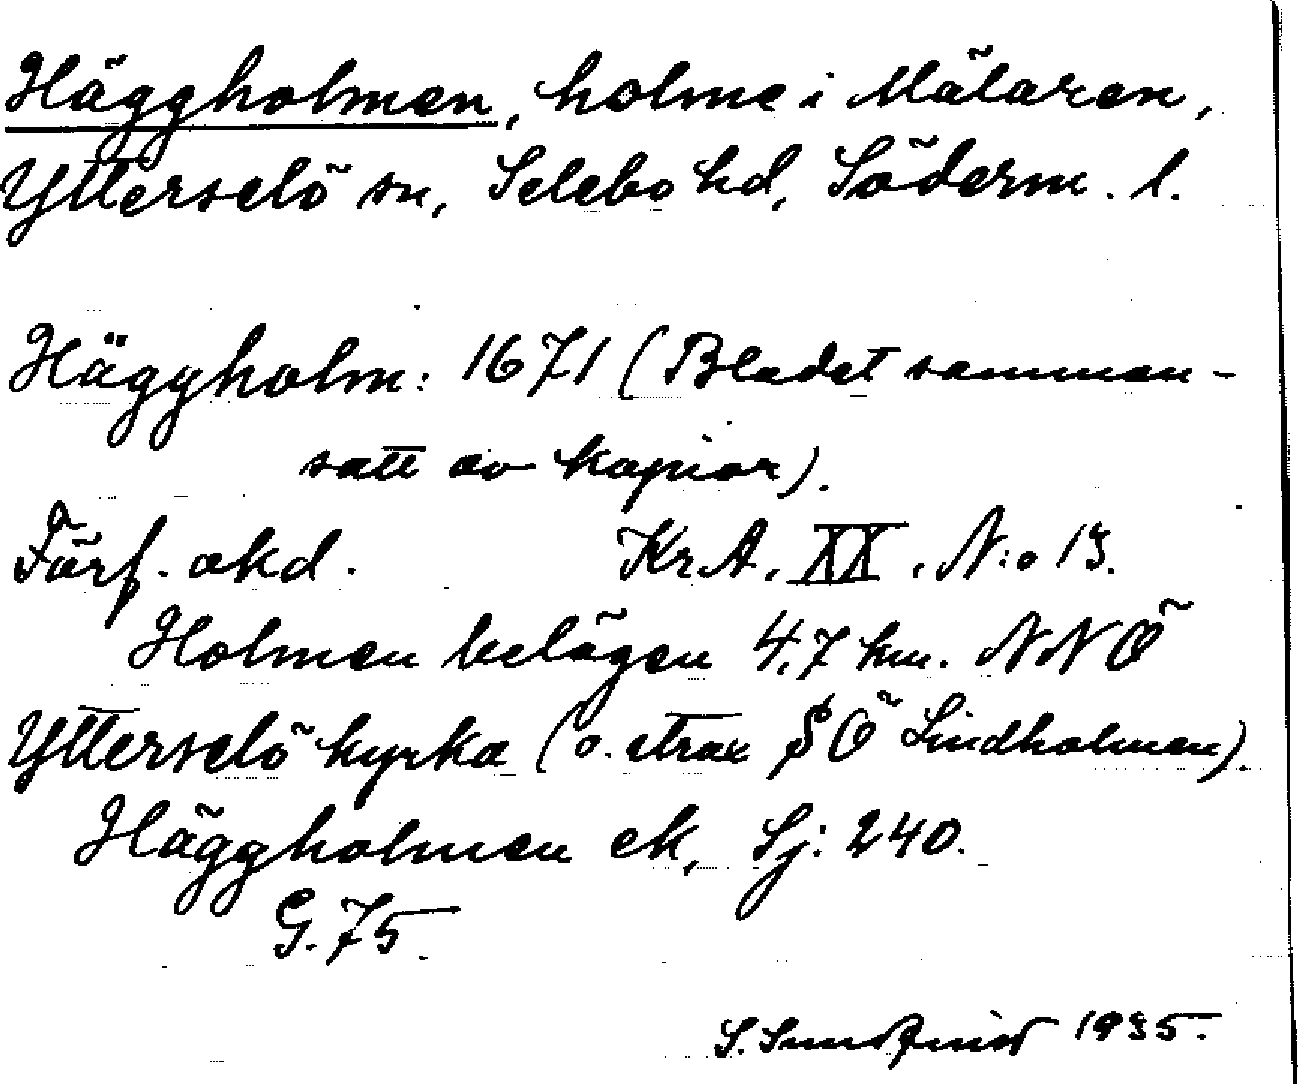 Häggholmen, holme i Mälaren,
Ytterselö sn, Selebo hd, Söderm. l.
Häggholm: 1671 (Bladet samman-
satt av kopior).
Förf. okd. Kr.A. XX. N:o 13.
Holmen belägen 4,7 km. NNÖ
Ytterselö kyrka (o. strax SÖ Lindholmen).
Häggholmen ek, Sj: 240.
G. 75.
S. Sundqvist 1935.